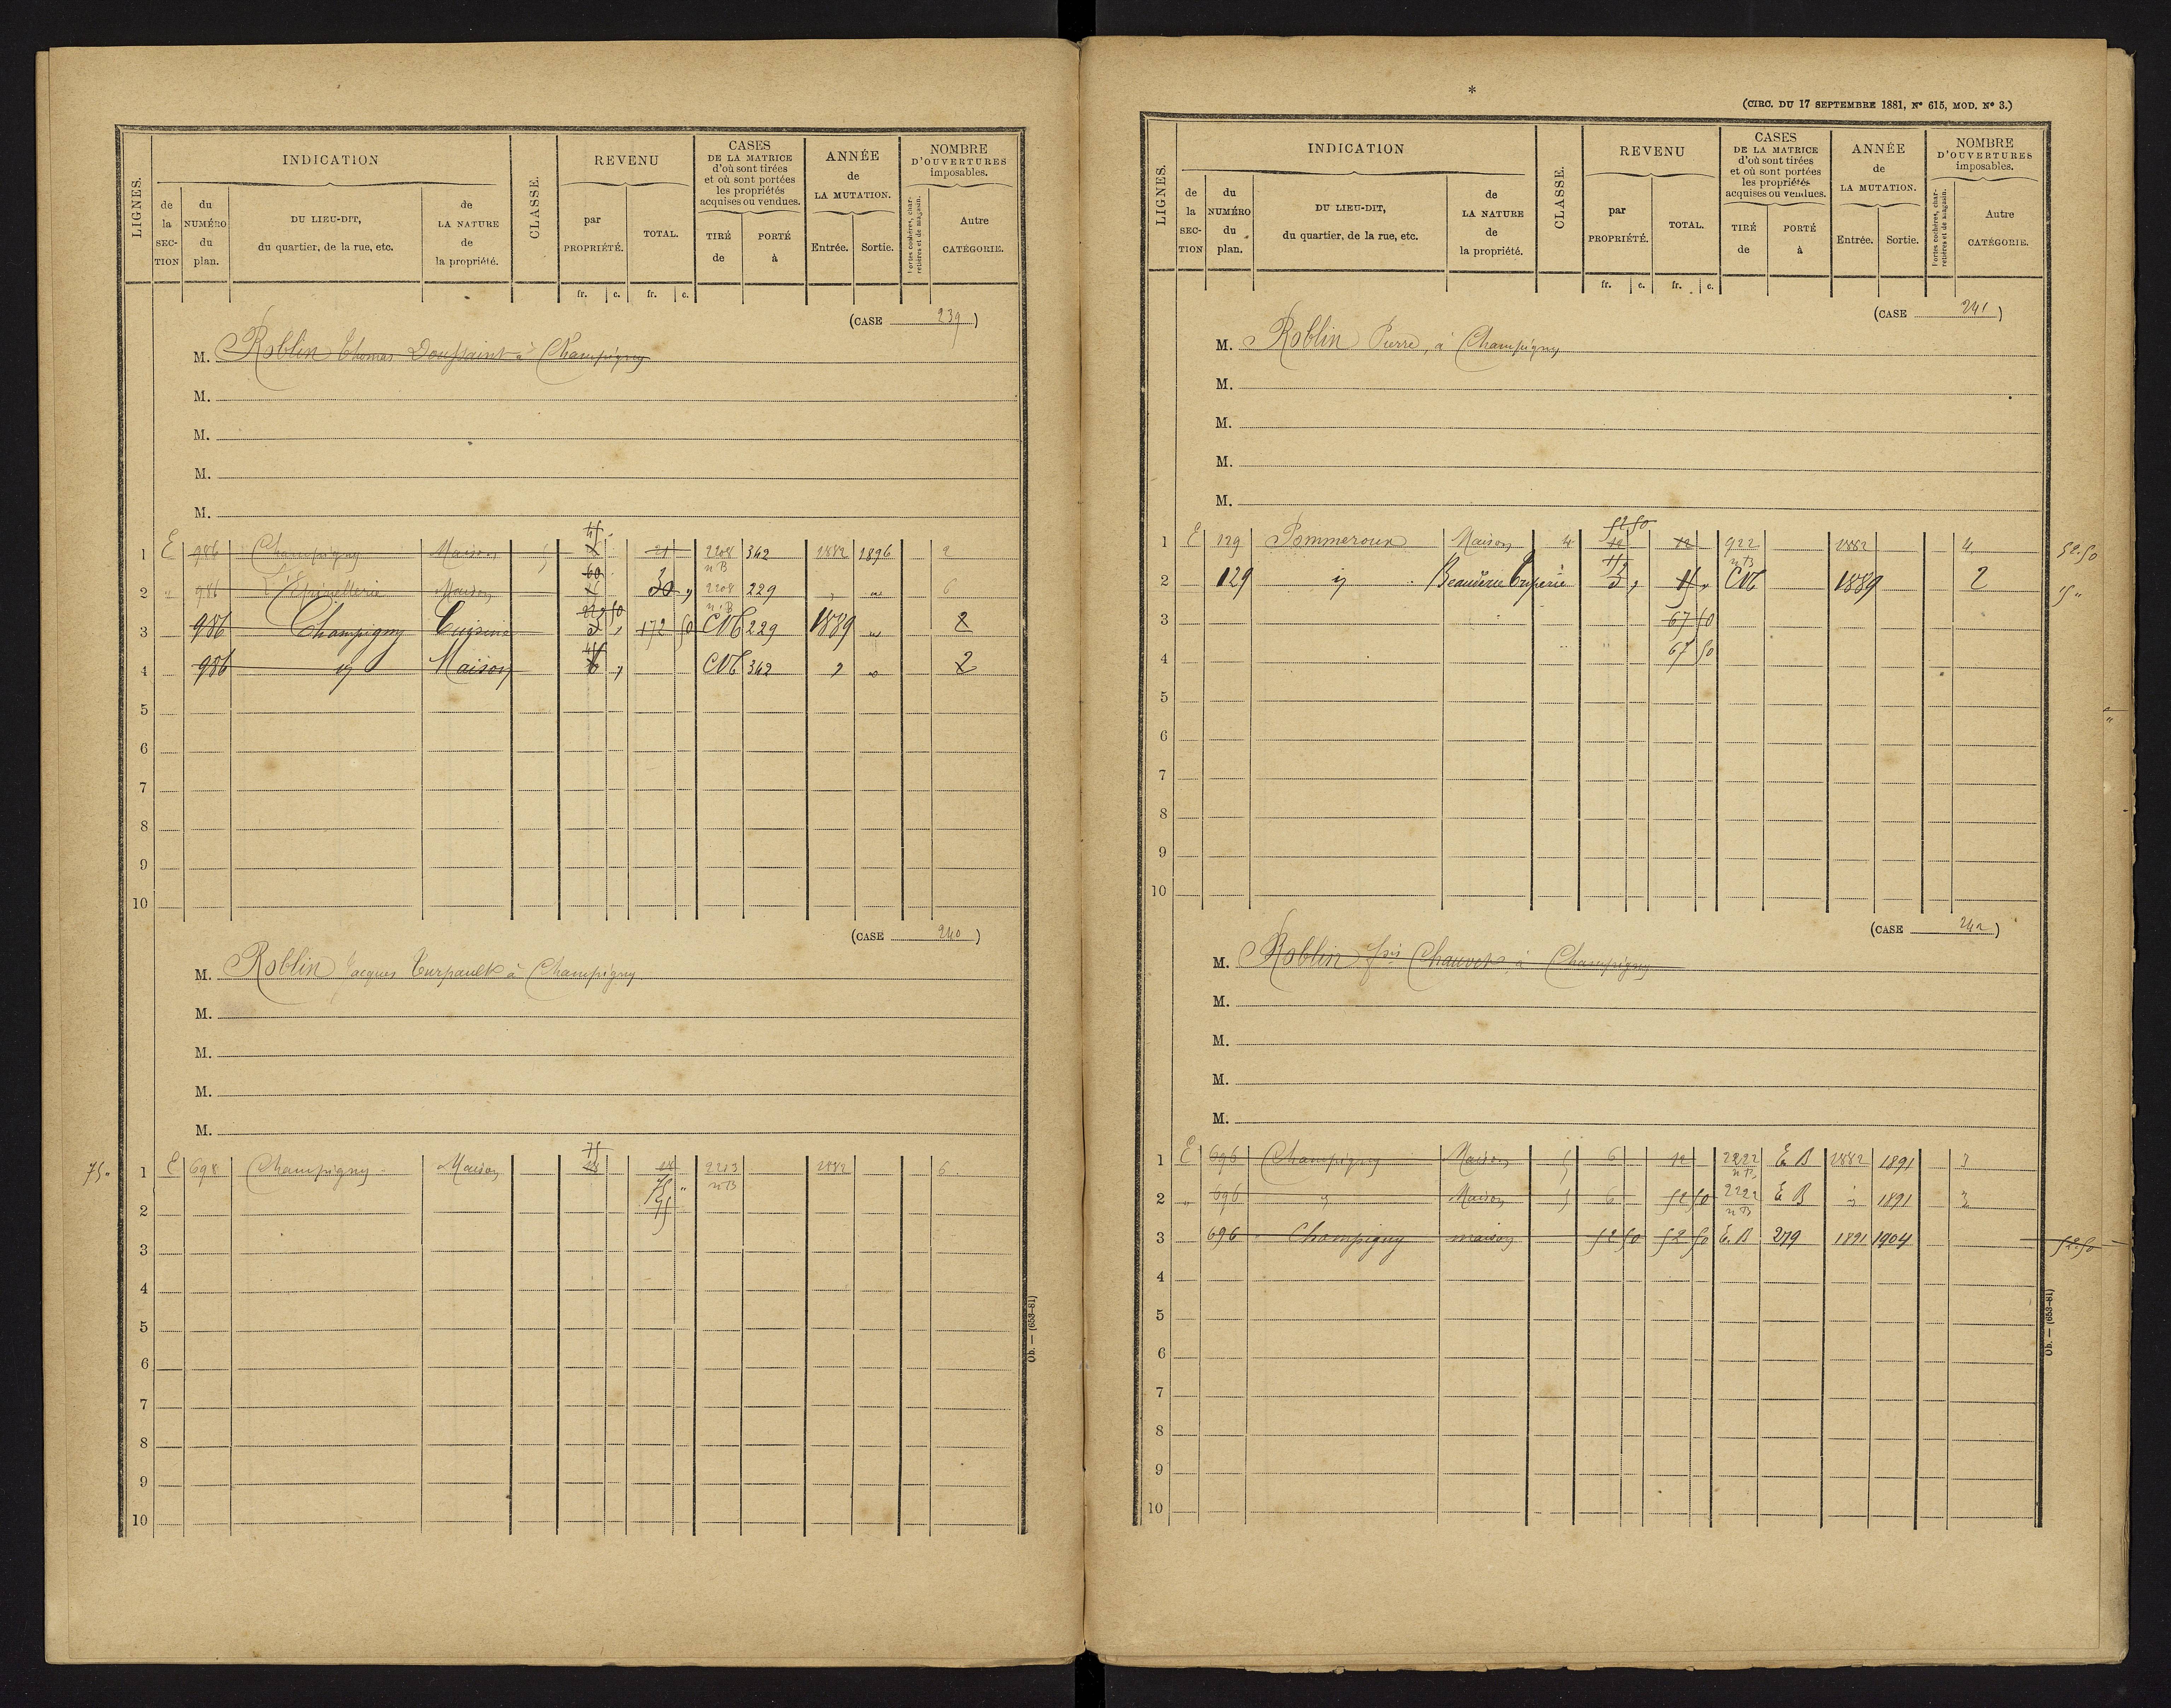 LIGNES.
INDICATION
de la SECTION
du NUMÉRO du plan.
DU LIEU-DIT, du quartier, de la rue, etc.
de LA NATURE de la propriété.
CLASSE.
REVENU
par PROPRIÉTÉ.
TOTAL.
fr. c. fr. c.
CASES DE LA MATRICE d'où sont tirées et où sont portées les propriétés acquises ou vendues.
TIRÉ de
PORTÉ à
ANNÉE de LA MUTATION.
Entrée. Sortie.
NOMBRE D'OUVERTURES imposables.
Portes cochères, charretières et de magasin.
Autre CATÉGORIE.
(CASE 239)
M. Roblin Thomas Doussaint à Champigny
M.
M.
M.
M.
1 E 986 Champigny Maison 5 21 2208 nB 342 1882 1896 2
2 " 986 Maison 60 30 " 2208 nB 229 " " 6
3 986 Champigny Cuisine 3 " 172 50 CNB 229 1889 " 2
4 986 id Maison 6 " CNB 342 " " 2
5
6
7
8
9
10
(CASE 240)
M. Roblin Jacques Turpault à Champigny
M.
M.
M.
M.
75 "
1 E 698 Champigny Maison 75 18 18 2213 nB 1882 6
75 "
2 75
3
4
5
6
7
8
9
10
Ob. — (653-81)
*
(CIRC. DU 17 SEPTEMBRE 1881, Nº 615, MOD. Nº 3.)
LIGNES.
INDICATION
de la SECTION
du NUMÉRO du plan.
DU LIEU-DIT, du quartier, de la rue, etc.
de LA NATURE de la propriété.
CLASSE.
REVENU
par PROPRIÉTÉ.
TOTAL.
fr. c. fr. c.
CASES DE LA MATRICE d'où sont tirées et où sont portées les propriétés acquises ou vendues.
TIRÉ de
PORTÉ à
ANNÉE de LA MUTATION.
Entrée. Sortie.
NOMBRE D'OUVERTURES imposables.
Portes cochères, charretières et de magasin.
Autre CATÉGORIE.
(CASE 241)
M. Roblin Pierre, à Champigny
M.
M.
M.
M.
52 50
1 E 129 Pommeroux Maison 4 12 12 922 nB 1882 4 52.50
2 129 id 3 " 15 " CNB 1889 2 15 "
3 67 50
4 67 50
5
6
7
8
9
10
(CASE 242)
M. Roblin fois Chauvet, à Champigny
M.
M.
M.
M.
1 E 696 Champigny Maison 5 6 12 2222 nB E B 1882 1891 3
2 " 696 " Maison 5 6 52 50 2222 nB E B " 1891 2
3 696 Champigny maison 52 50 52 50 E. B 279 1891 1904 52.50
4
5
6
7
8
9
10
Ob. — (653-81)